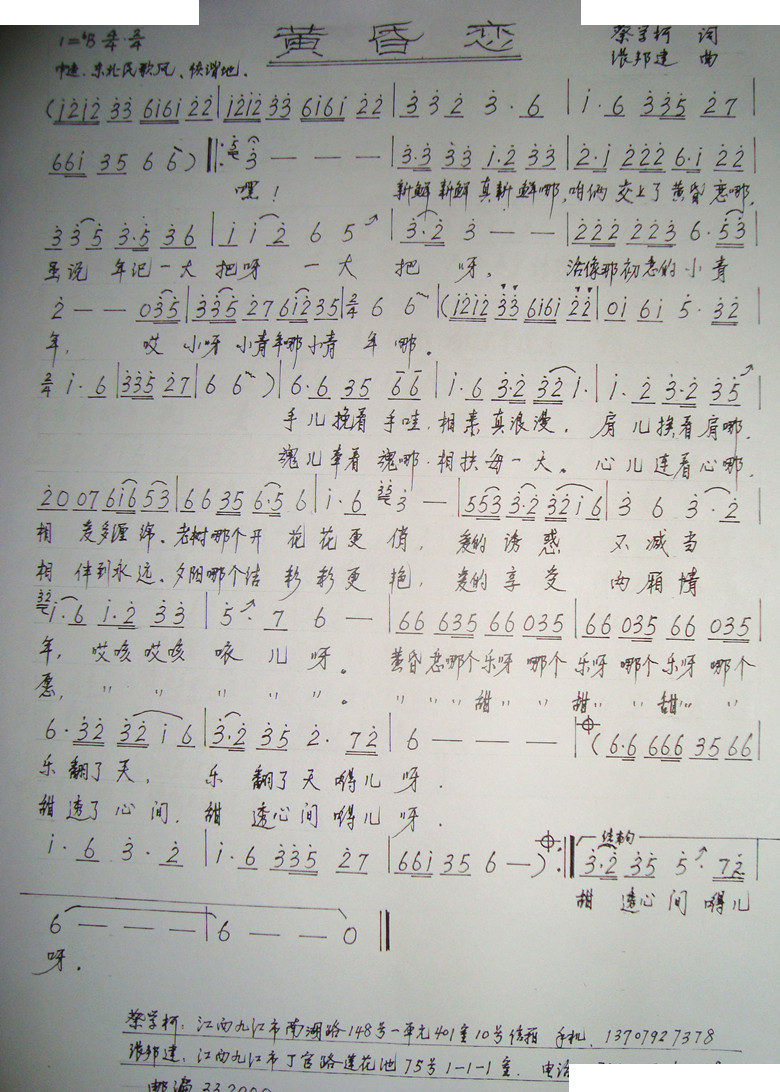 黄昏恋
1=♭B 2/4 3/4
蔡学柯 词
中速、东北民歌风、诙谐地.
张邦建 曲
(i2i2 33 6i6i 22 | i2i2 33 6i6i 22 | 3 3 2 3· 6 | i· 6 335 27 |
66i 35 6 6 ) ‖: 3 — — — | 3·3 33 i·2 33 | 2·i 222 6·i 22 |
嘿！ 新鲜新鲜真新鲜哪,咱俩交上了黄昏恋哪,
3 35 3·5 36 | i i 2 6 5 | 3·2 3 — — | 222 223 6·53 |
虽说 年记一大 把呀 一大 把 呀、 洽像那初恋的小青
2 — — 035 | 335 27 6i2 35 | 2/4 6 6 | (i2i2 33 6i6i 22 | 0i 6i 5· 32 |
年, 哎 小呀小青年哪小青 年 哪。
2/4 i· 6 | 335 27 | 6 6 ) | 6·6 35 66 | i·6 3·2 32 i· | i·2 3·2 35 |
手儿挽着 手哇.相亲真浪漫. 肩儿挨着肩哪.
魂儿牵着 魂哪.相扶每一天。 心儿连着心哪.
20 07 6i6 53 | 66 35 6·5 6 | i·6 3 — | 553 3·2 32 i6 | 3 6 3·2 |
相 爱多缠绵、老树哪个开 花花更 俏, 爱的诱惑 不减当
相 伴到永远、夕阳哪个结 彩彩更 艳, 爱的享受 两厢情
i·6 i·2 33 | 5· 7 6 — | 66 635 66 035 | 66 035 66 035 |
年, 哎咳哎咳 咳儿呀。 黄昏恋哪个乐呀 哪个乐呀 哪个乐呀 哪个
愿, 〃 〃 〃 〃 〃 。 〃 〃 〃 甜 〃 〃 甜 〃 〃 甜 〃 〃
6·32 32 i 6 | 3·2 35 2· 72 | 6 — — — | (6·6 666 35 66 |
乐 翻了天, 乐 翻了天嘚儿 呀.
甜 透了心间. 甜 透心间嘚儿 呀.
i·6 3·2 | i·6 335 27 | 66i 35 6 — ) :‖ 结束句 3·2 35 5· 72 |
甜 透心间 嘚儿
6 — — — | 6 — — 0 ‖
呀.
蔡学柯: 江西九江市南湖路148号一单元401室10号信箱 手机. 13707927378
张邦建: 江西九江市丁官路莲花池75号1-1-1室. 电话
邮编 332000